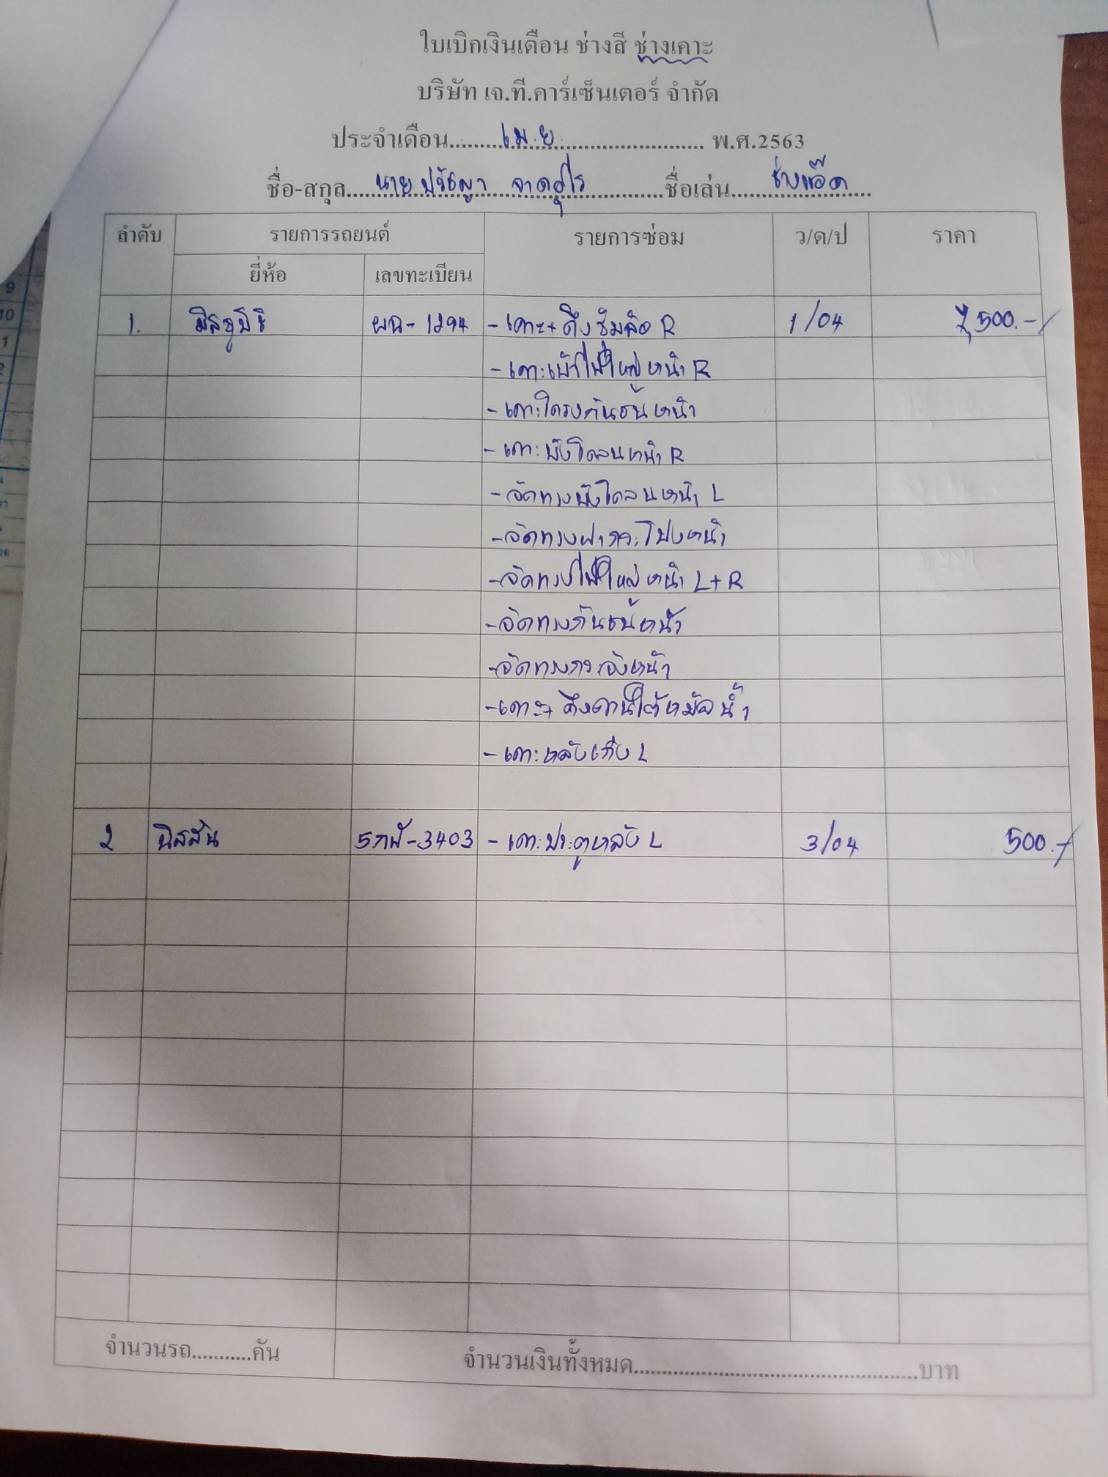 ใบเบิกเงินเดือน ช่างสี ช่างเคาะ
บริษัท เจ.ที.คาร์เซ็นเตอร์ จำกัด
ประจำเดือน.....เม.ย.....พ.ศ.2563
ชื่อ-สกุล....นาย ปรัชญา.....ชื่อเล่น.....ช่างแอ๊ด.....
ลำดับ รายการรถยนต์ รายการซ่อม ว/ด/ป ราคา
ยี่ห้อ เลขทะเบียน
1. มิตซูบิชิ 1294 - เคาะ+ดึงซุ้มล้อ R 1/04 500.-
- เคาะเบ้าไฟใหญ่หน้า R
- เคาะโครงกันชนหน้า
- เคาะบังโคลนหน้า R
- จัดทรงบังโคลนหน้า L
- จัดทรงฝากระโปรงหน้า
- จัดทรงไฟใหญ่หน้า L+R
- จัดทรงกันชนหน้า
- จัดทรงกระจังหน้า
- เคาะ+ดึงคานใต้หม้อน้ำ
- เคาะหลังเก๋ง L
2 นิสสัน 3403 - เคาะประตูหลัง L 3/04 500.-
จำนวนรถ...........คัน จำนวนเงินทั้งหมด................................................บาท